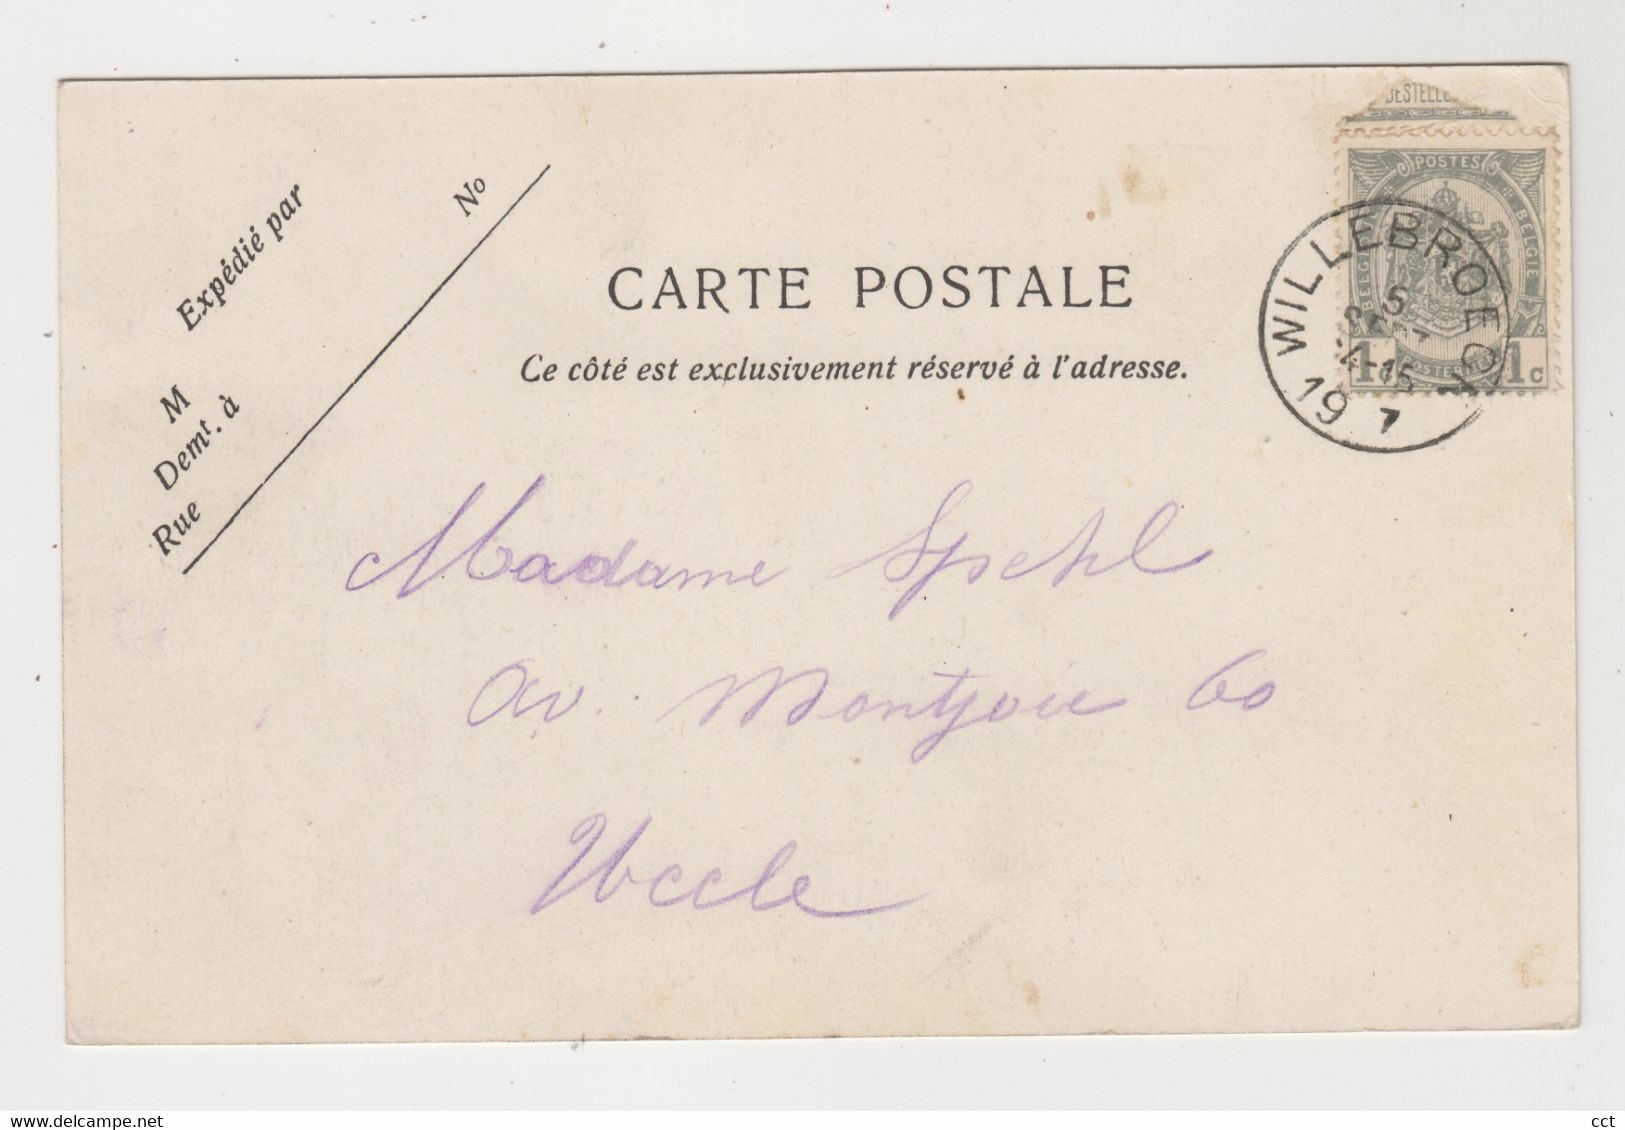 DESTELLE
POSTES
BELGIQUE BELGIE
1 POSTERIJEN 1c
WILLEBROECK
5
4-15
19 7
Expédié par
M
Demt. à
Rue
No
CARTE POSTALE
Ce côté est exclusivement réservé à l'adresse.
Madame Spehl
Av. Montjoie 60
Uccle
delcampe.net
cct